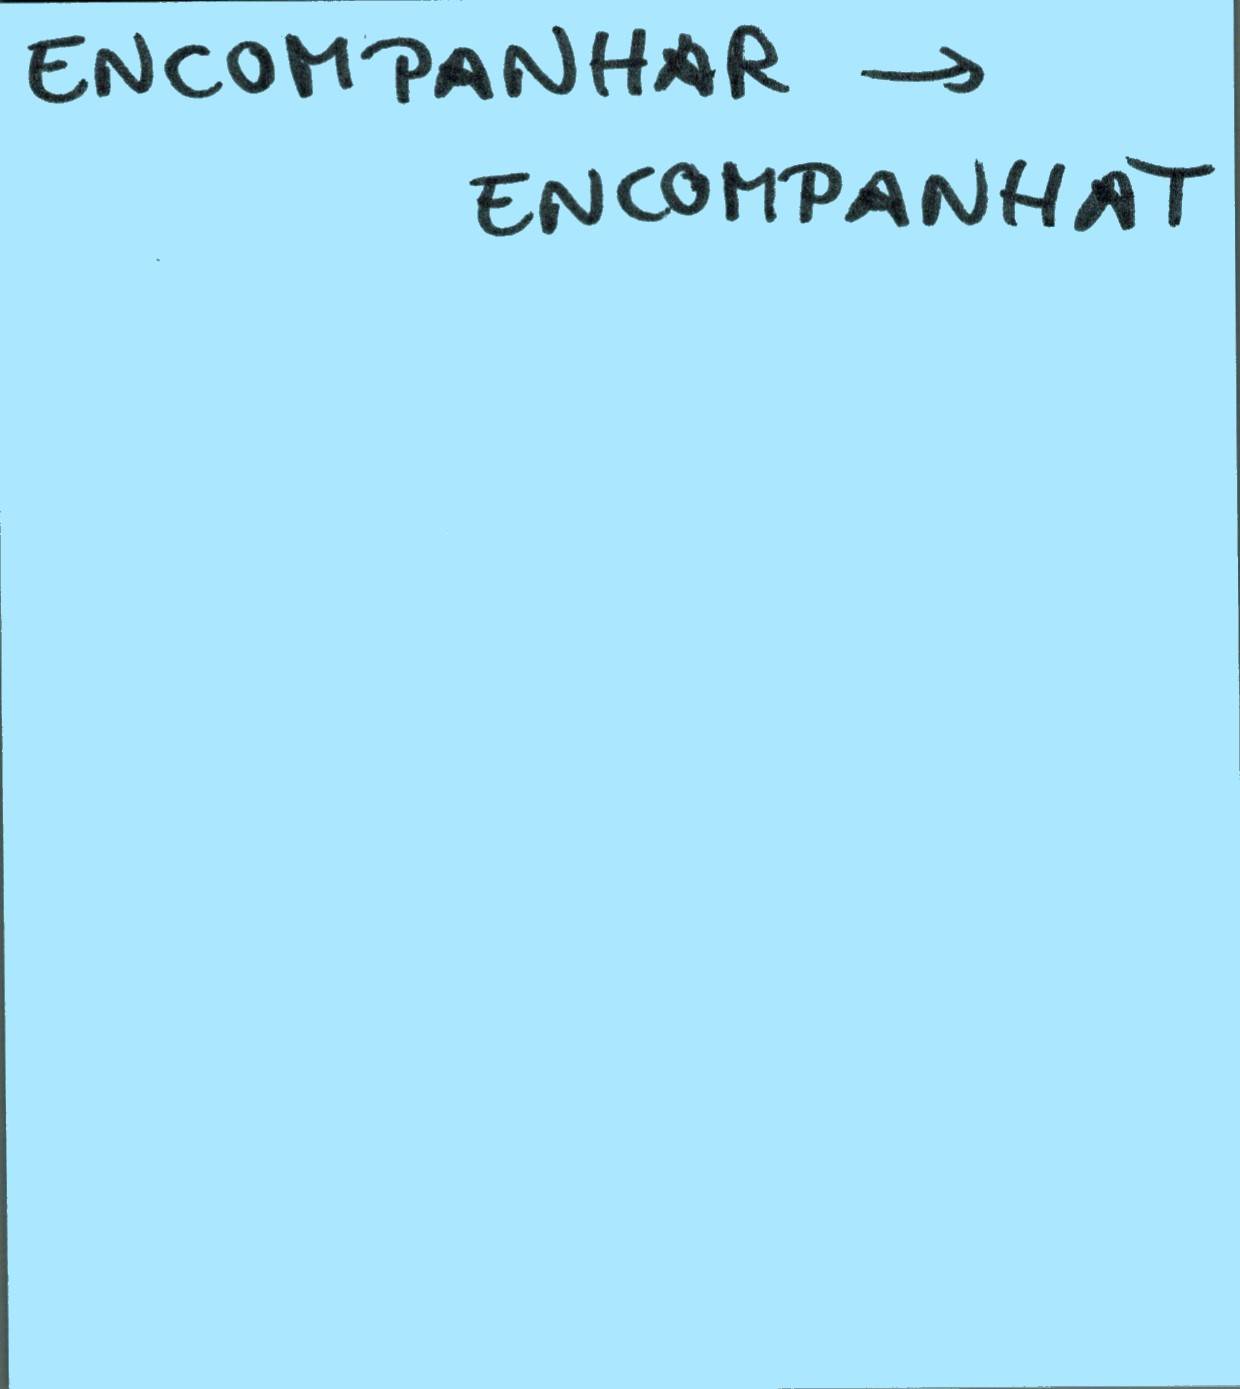 ENCOMPANHAR →
ENCOMPANHAT